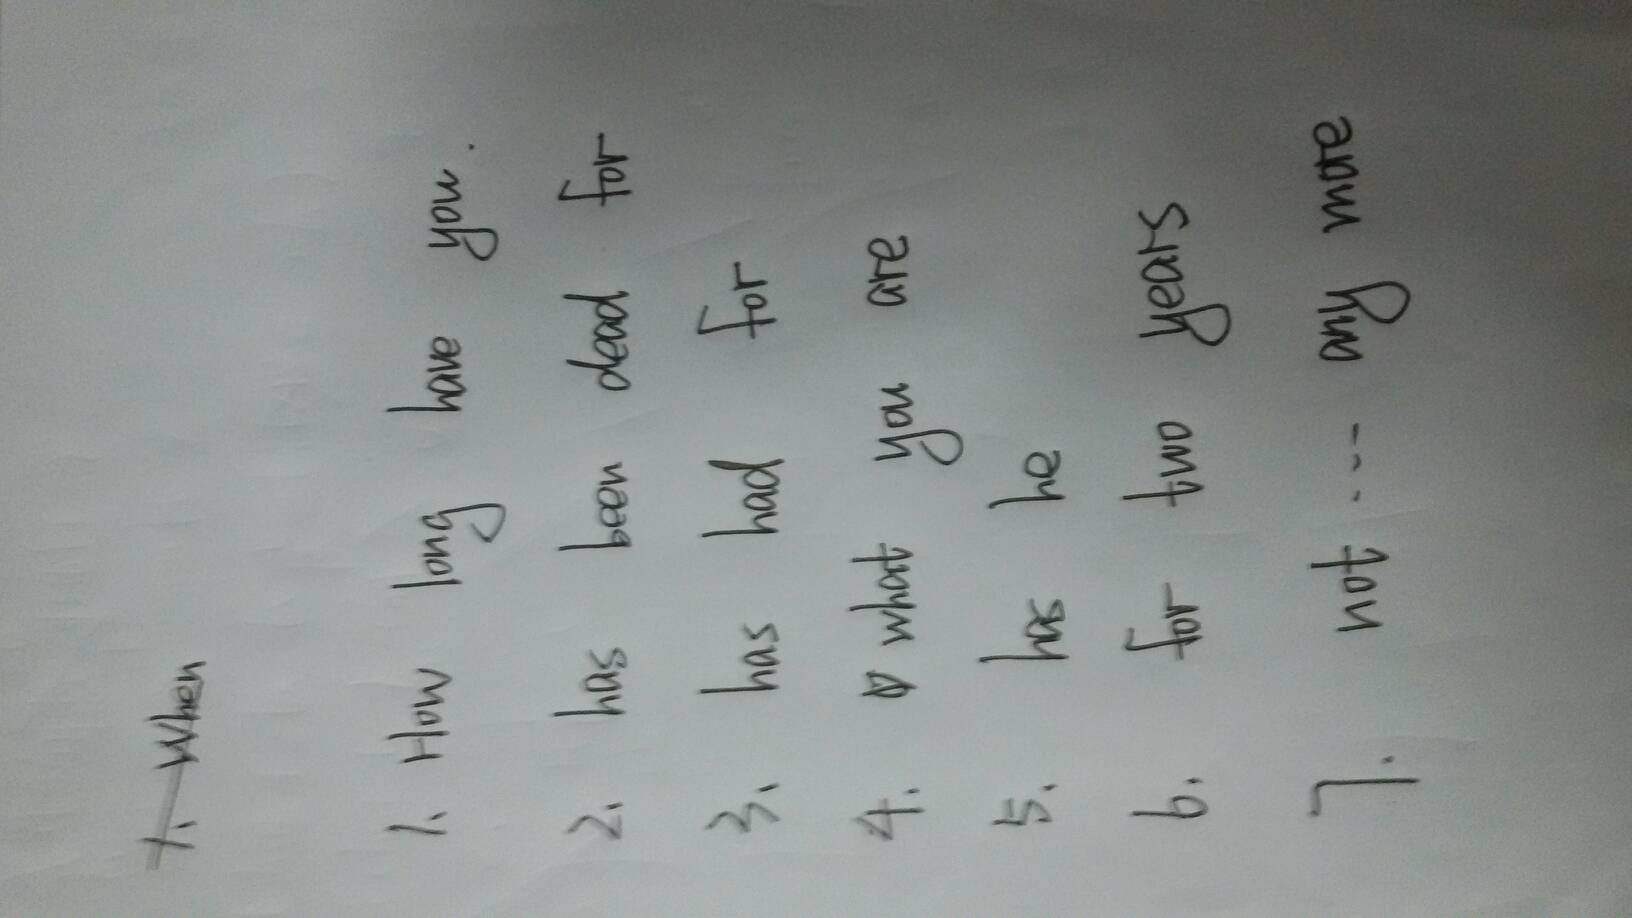 1. When
1. How long have you.
2. has been dead for
3. has had for
4. what you are
5. has he
6. for two years
7. not ... any more